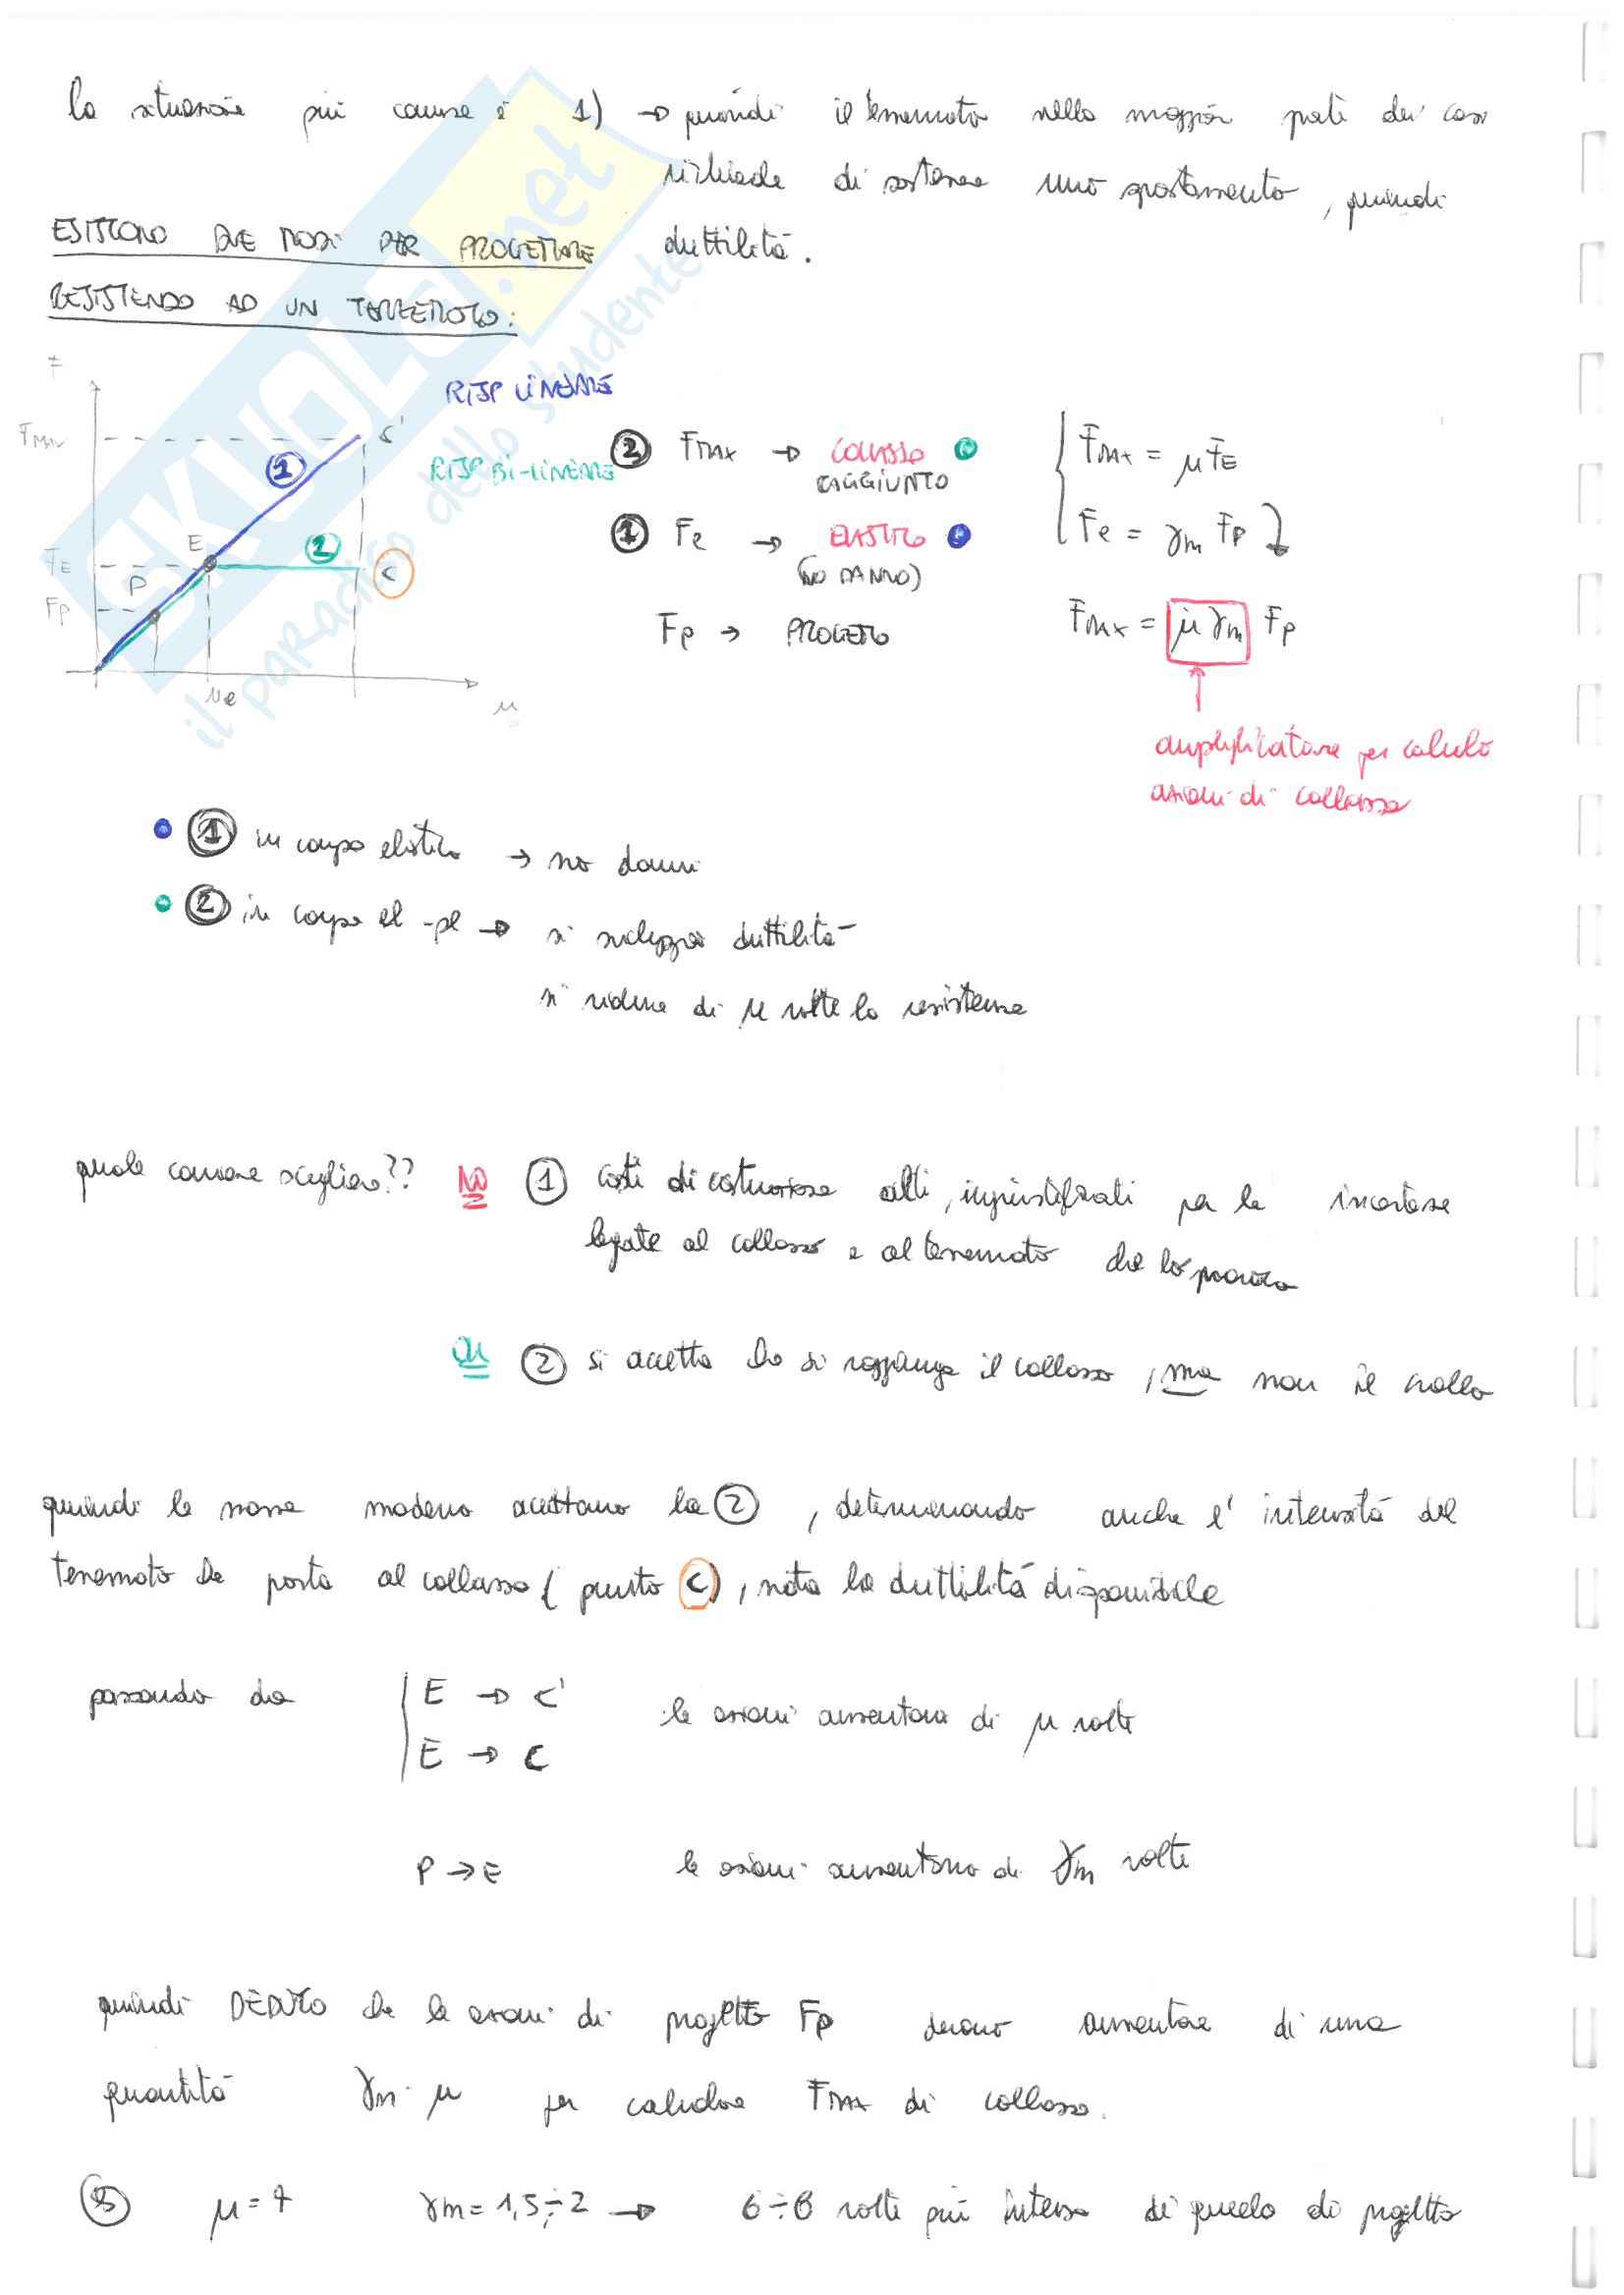 la situazione più comune è 1) → quindi il terremoto nella maggior parte dei casi
richiede di sostenere uno spostamento, quindi
duttilità.
ESISTONO DUE MODI PER PROGETTARE
RESISTENDO AD UN TERREMOTO:
F
RISP LINEARE
FMAX
C'
1
RISP BI-LINEARE
E
2
FE
C
P
FP
ue
u
2 FMAX → COLLASSO
RAGGIUNTO
1 Fe → ELASTICO
(NO DANNO)
Fp → PROGETTO
FMAX = μ FE
Fe = γm Fp
FMAX = μ γm Fp
amplificatore per calcolo
azioni di collasso
1 in campo elastico → no danni
2 in campo el-pl → si sviluppa duttilità
si riduce di μ volte la resistenza
quale conviene scegliere?? NO 1 costi di costruzione alti, ingiustificati per le incertezze
legate al collasso e al terremoto che lo provoca
OK 2 si accetta che si raggiunga il collasso, ma non il crollo
quindi le norme moderne accettano la 2, determinando anche l'intensità del
terremoto che porta al collasso (punto C), nota la duttilità disponibile
passando da E → C' le azioni aumentano di μ volte
E → C
P → E le azioni aumentano di γm volte
quindi DEDUCO che le azioni di progetto Fp devono aumentare di una
quantità γm·μ per calcolare FMAX di collasso.
μ = 4 γm = 1,5÷2 → 6÷8 volte più intenso di quello di progetto
SKUOLA.net
il paradiso dello studente